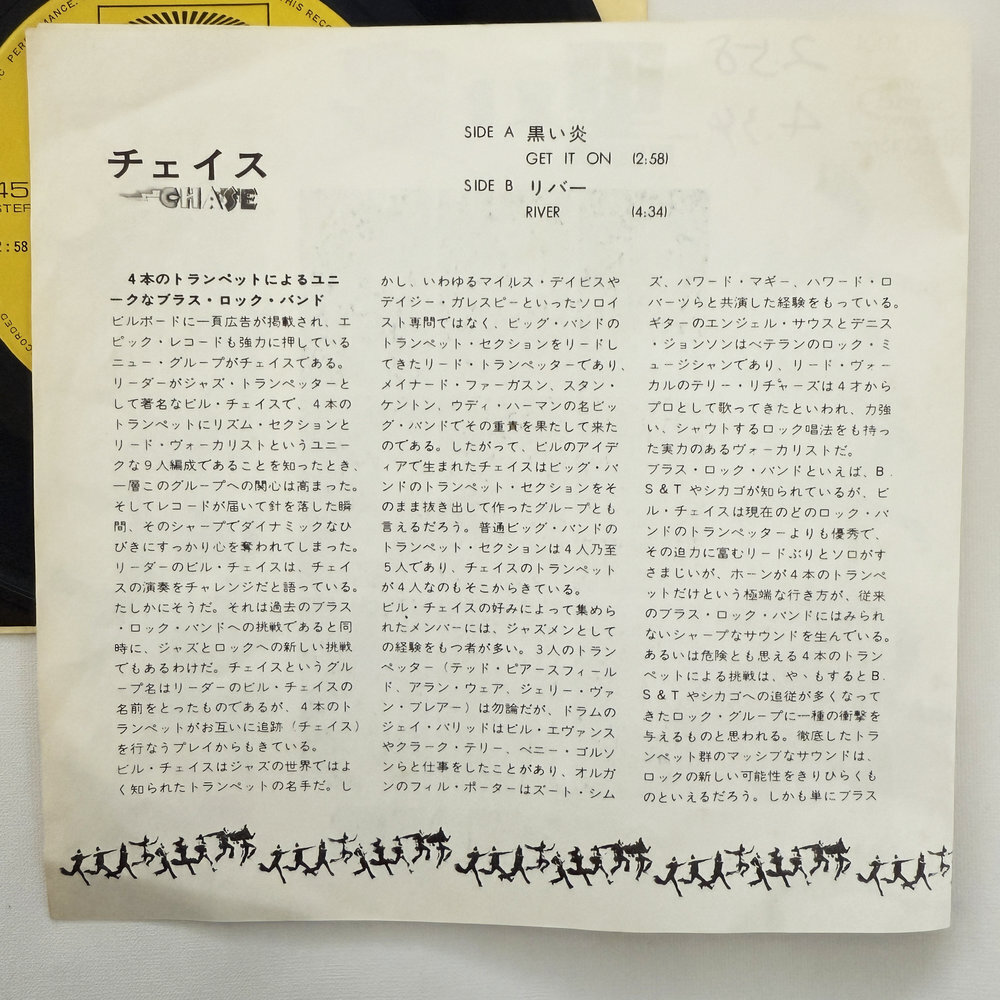 THIS RECO
PERFORMANCE.
45
STER
2:58
CORDED
258
チェイス
CHASE
SIDE A 黒い炎
GET IT ON (2:58)
SIDE B リバー
RIVER (4:34)
4本のトランペットによるユニ
ークなブラス・ロック・バンド
ビルボードに一頁広告が掲載され、エ
ピック・レコードも強力に押している
ニュー・グループがチェイスである。
リーダーがジャズ・トランペッターと
して著名なビル・チェイスで、4本の
トランペットにリズム・セクションと
リード・ヴォーカリストというユニー
クな9人編成であることを知ったとき、
一層このグループへの関心は高まった。
そしてレコードが届いて針を落した瞬
間、そのシャープでダイナミックなひ
びきにすっかり心を奪われてしまった。
リーダーのビル・チェイスは、チェイ
スの演奏をチャレンジだと語っている。
たしかにそうだ。それは過去のブラス
・ロック・バンドへの挑戦であると同
時に、ジャズとロックへの新しい挑戦
でもあるわけだ。チェイスというグル
ープ名はリーダーのビル・チェイスの
名前をとったものであるが、4本のト
ランペットがお互いに追跡（チェイス）
を行なうプレイからもきている。
ビル・チェイスはジャズの世界ではよ
く知られたトランペットの名手だ。し
かし、いわゆるマイルス・デイビスや
デイジー・ガレスピーといったソロイ
スト専門ではなく、ビッグ・バンドの
トランペット・セクションをリードし
てきたリード・トランペッターであり、
メイナード・ファーガスン、スタン・
ケントン、ウディ・ハーマンの名ビッ
グ・バンドでその重責を果たして来た
のである。したがって、ビルのアイデ
ィアで生まれたチェイスはビッグ・バ
ンドのトランペット・セクションをそ
のまま抜き出して作ったグループとも
言えるだろう。普通ビッグ・バンドの
トランペット・セクションは4人乃至
5人であり、チェイスのトランペット
が4人なのもそこからきている。
ビル・チェイスの好みによって集めら
れたメンバーには、ジャズメンとして
の経験をもつ者が多い。3人のトラン
ペッター（テッド・ピアースフィール
ド、アラン・ウェア、ジェリー・ヴァ
ン・ブレアー）は勿論だが、ドラムの
ジェイ・バリッドはビル・エヴァンス
やクラーク・テリー、ベニー・ゴルソ
ンらと仕事をしたことがあり、オルガ
ンのフィル・ポーターはズート・シム
ズ、ハワード・マギー、ハワード・ロ
バーツらと共演した経験をもっている。
ギターのエンジェル・サウスとデニス
・ジョンソンはベテランのロック・ミ
ュージシャンであり、リード・ヴォー
カルのテリー・リチャーズは4才から
プロとして歌ってきたといわれ、力強
い、シャウトするロック唱法をも持っ
た実力のあるヴォーカリストだ。
ブラス・ロック・バンドといえば、B.
S & T やシカゴが知られているが、ビ
ル・チェイスは現在のどのロック・バ
ンドのトランペッターよりも優秀で、
その迫力に富むリードぶりとソロがす
さまじいが、ホーンが4本のトランペ
ットだけという極端な行き方が、従来
のブラス・ロック・バンドにはみられ
ないシャープなサウンドを生んでいる。
あるいは危険とも思える4本のトラン
ペットによる挑戦は、やゝもするとB.
S & T やシカゴへの追従が多くなって
きたロック・グループに一種の衝撃を
与えるものと思われる。徹底したトラ
ンペット群のマッシブなサウンドは、
ロックの新しい可能性をきりひらくも
のといえるだろう。しかも単にブラス